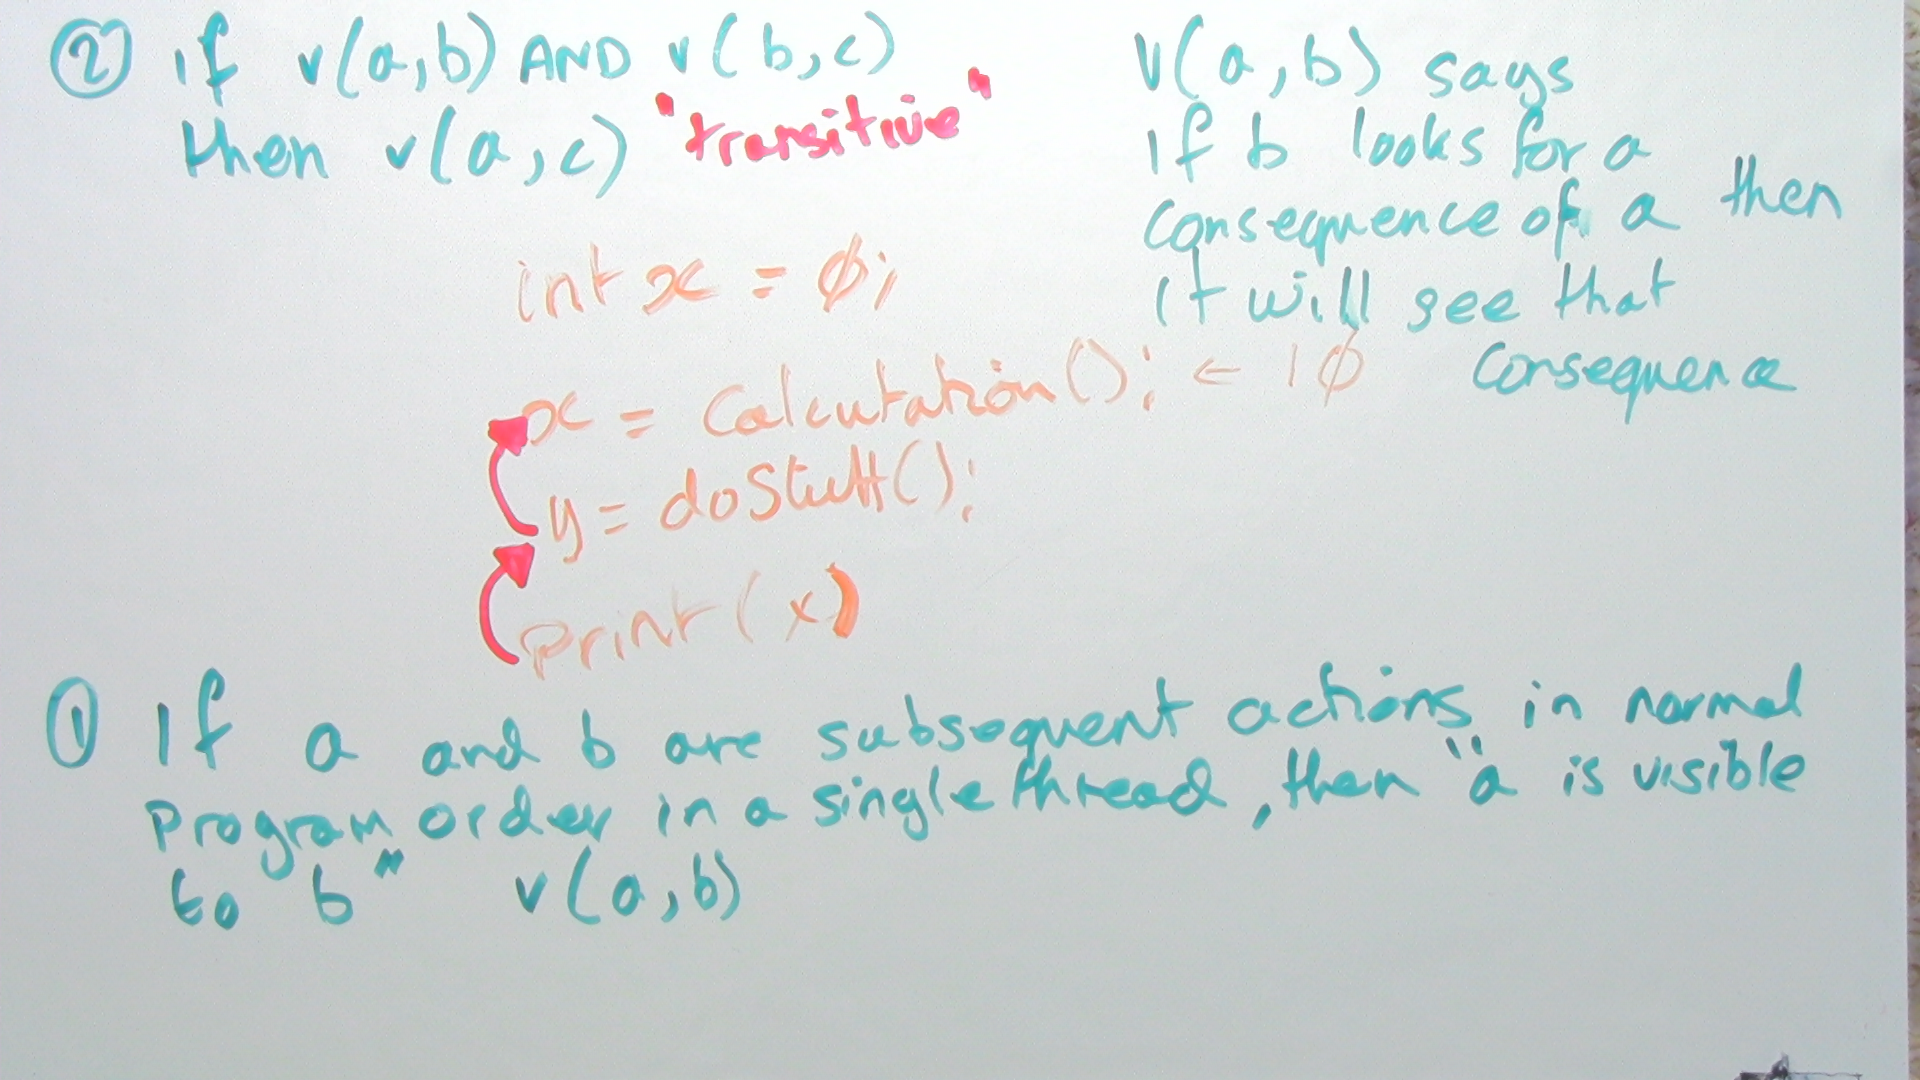 ② If v(a,b) AND v(b,c)
then v(a,c) "transitive"
V(a,b) says
if b looks for a
consequence of a then
it will see that
consequence
int x = Ø;
x = Calculation(); ← 1Ø
y = doStuff();
Print(x)
① If a and b are subsequent actions in normal
Program order in a single thread, then "a is visible
to b" v(a,b)